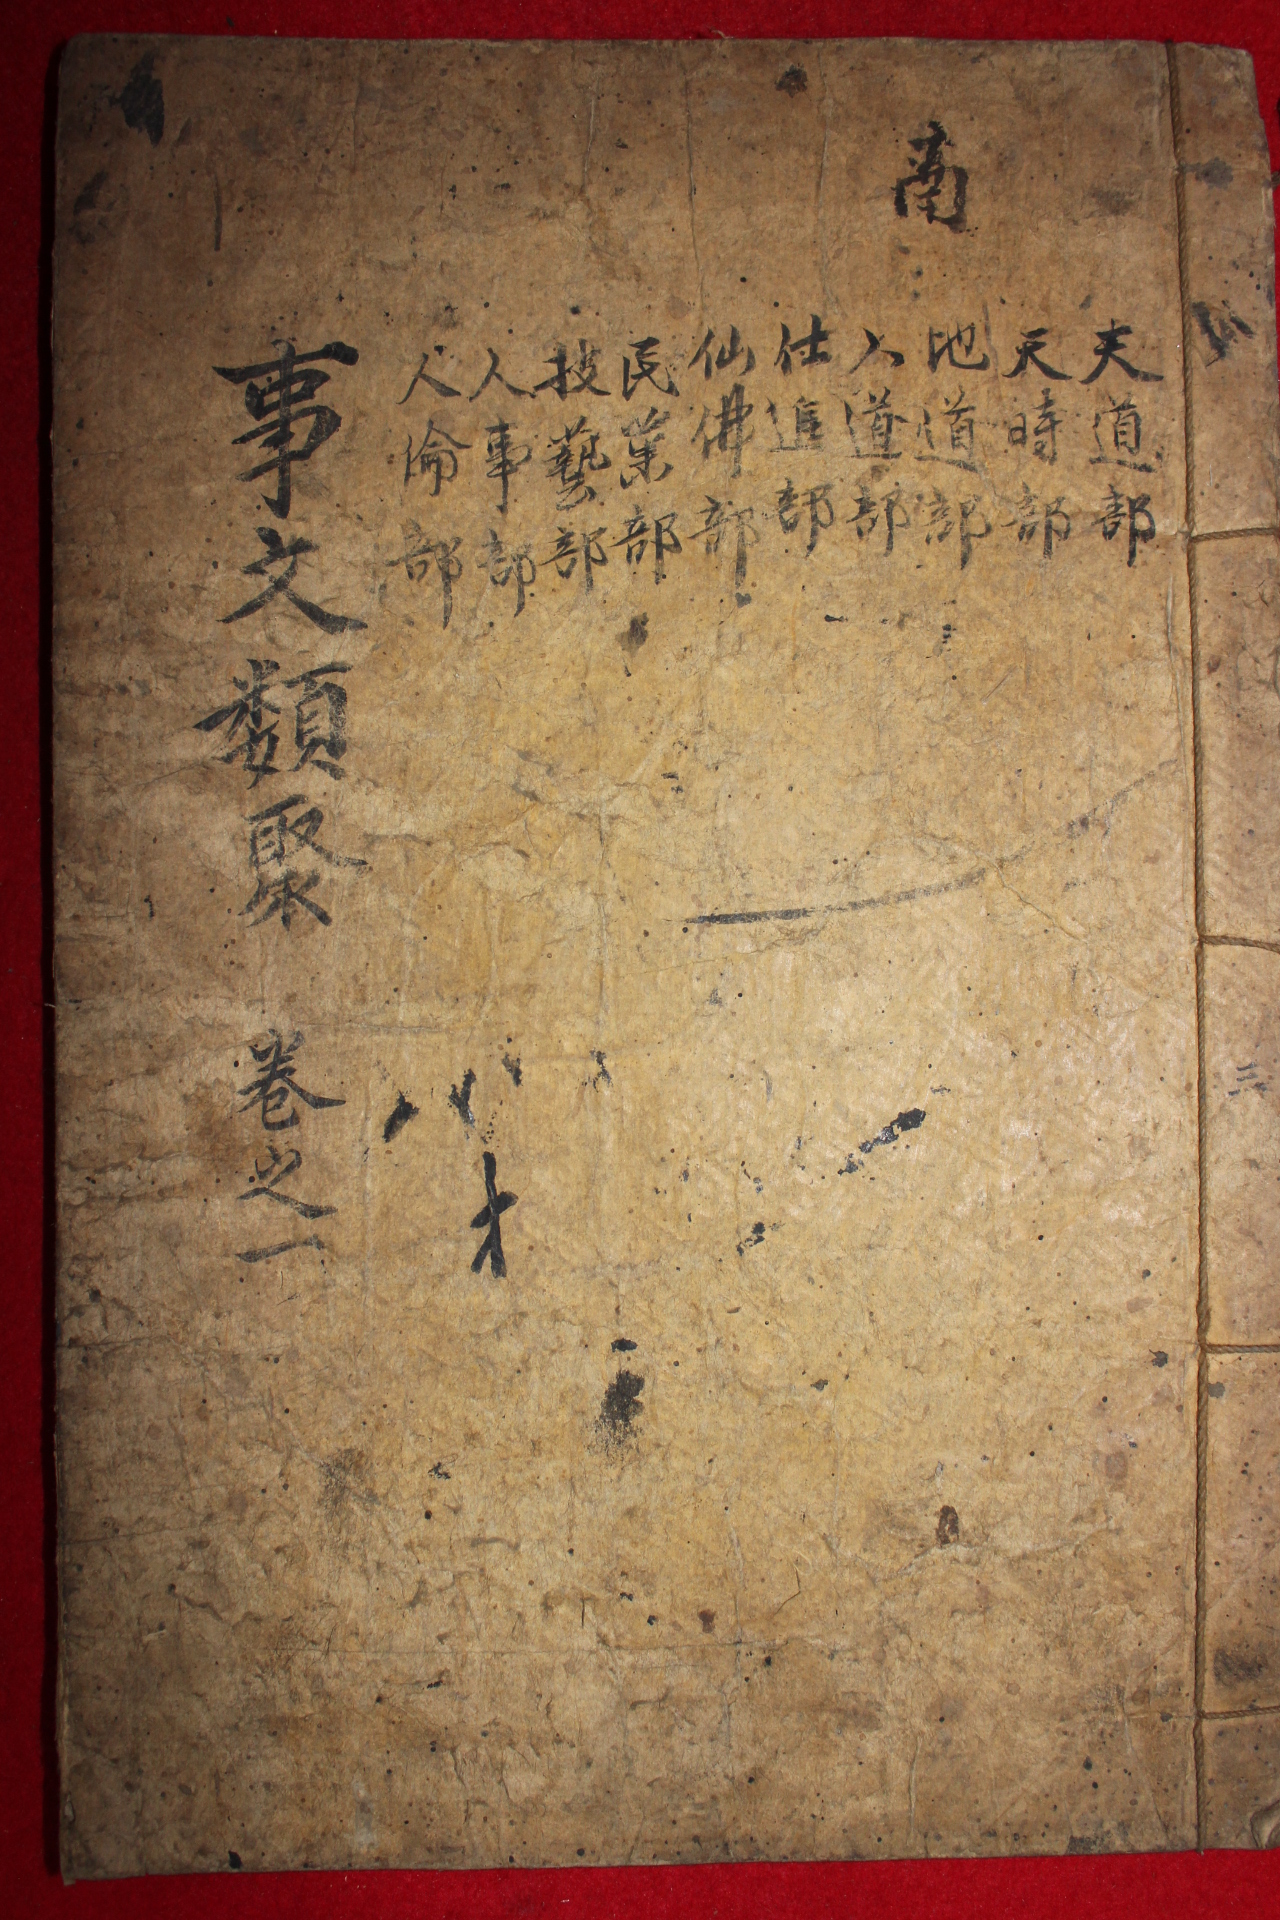 商
天道部
天時部
地道部
人道部
仕進部
仙佛部
民業部
技藝部
人事部
人倫部
事文類聚 卷之一
三